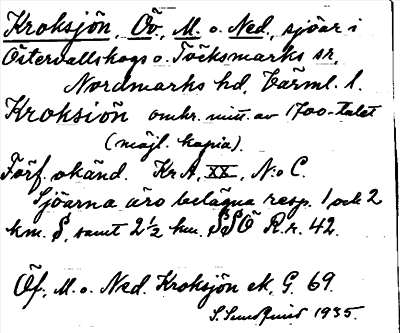 Kroksjön, Öv., M. o. Ned., sjöar i
Östervallskogs o. Töcksmarks sr,
Nordmarks hd, Värml. l.
Kroksiön omkr. mitt. av 1700-talet
(möjl. kopia).
Förf. okänd. KrA, XX, N:o C.
Sjöarna äro belägna resp. 1 och 2
km. S, samt 2½ km. SSÖ R.r. 42.
Öf., M. o. Ned. Kroksjön ek. G. 69.
S. Sundquist 1935.